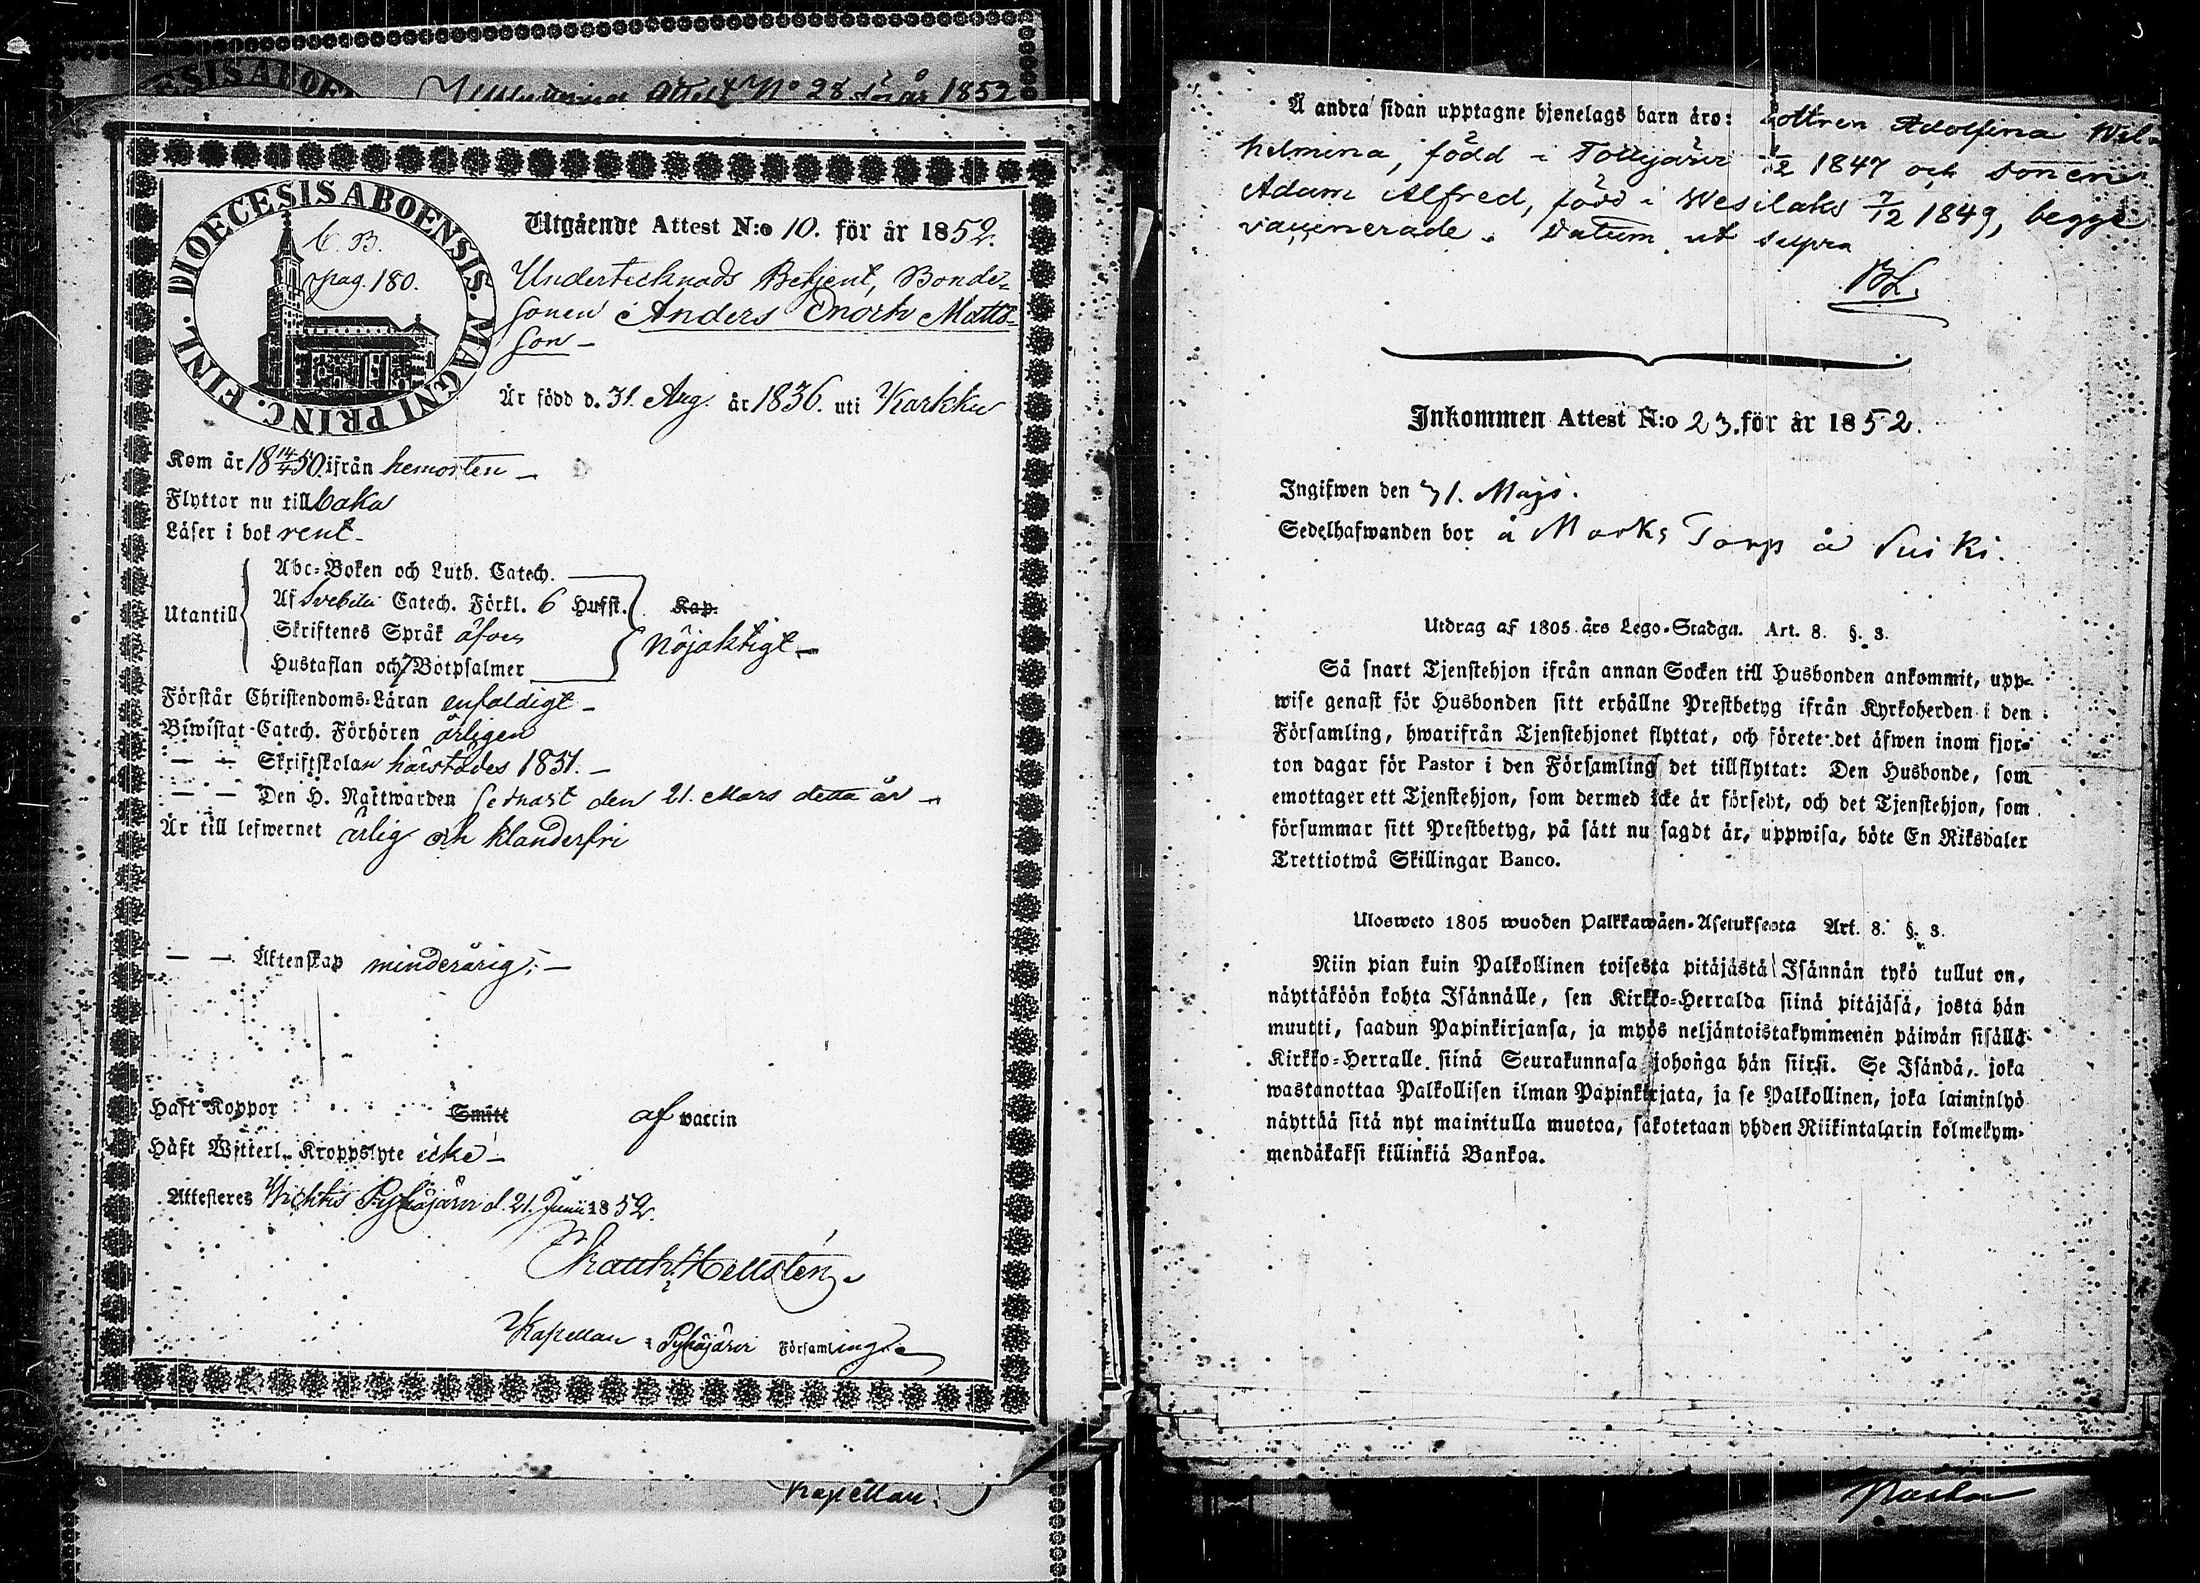 Attest N:o 28 för år 1852
DIOECESIS ABOENSIS. MAGNI PRINC. FINL.
C. B.
pag. 180.
Utgående Attest N:o 10. för år 1852.
Undertecknads Betjent, Bonde-
sonen Anders Enoch Matts-
son –
Är född d. 31. Aug. år 1836. uti Karkku
Kom år 18 14/4 50. ifrån hemorten –
Flyttar nu till baka
Läser i bok rent –
Utantill
Abc-Boken och Luth. Catech.
Af Svebilii Catech. Förkl. 6 Hufst. Kap.
Skriftenes Språk äfven
Hustaflan och 7 Botpsalmer
nöjaktigt –
Förstår Christendoms-Läran enfaldigt –
Biwistat Catech. Förhören årligen
— — Skriftskolan härstädes 1851. –
— — Den H. Nattwarden sednast den 21. Mars detta år –
Är till lefwernet ärlig och klanderfri
— — Äktenskap minderårig; –
Haft Koppor Smitt af vaccin
Haft Witterl. Kroppslyte icke –
Attesteres Wichtis Pyhäjärvi d. 21. Junii 1852.
Hellstén
Kapellan i Pyhäjärvi Församling.
Kapellan.
Å andra sidan upptagne hjonelags barn äro: dottren Adolfina Wil-
helmina, född i Tottijärvi 1/2 1847 och sonen
Adam Alfred, född i Wesilaks 7/12 1849, begge
vaccinerade. Datum ut supra
BL.
Inkommen Attest N:o 23. för år 1852.
Ingifwen den 31. Maji.
Sedelhafwanden bor å Marks Torp å Suiki.
Utdrag af 1805 års Lego-Stadga. Art. 8. §. 3.
Så snart Tjenstehjon ifrån annan Socken till Husbonden ankommit, upp-
wise genast för Husbonden sitt erhållne Prestbetyg ifrån Kyrkoherden i den
Församling, hwarifrån Tjenstehjonet flyttat, och förete det äfwen inom fjor-
ton dagar för Pastor i den Församling det tillflyttat: Den Husbonde, som
emottager ett Tjenstehjon, som dermed icke är försedt, och det Tjenstehjon, som
försummar sitt Prestbetyg, på sätt nu sagdt är, uppwisa, böte En Riksdaler
Trettiotwå Skillingar Banco.
Ulosweto 1805 wuoden Palkkawäen-Asetuksesta Art. 8. §. 3.
Niin pian kuin Palkollinen toisesta pitäjästä Isännän tykö tullut on,
näyttäköön kohta Isännälle, sen Kirkko-Herralda siinä pitäjäsä, josta hän
muutti, saadun Papinkirjansa, ja myös neljäntoistakymmenen päiwän sisällä
Kirkko-Herralle siinä Seurakunnasa johonga hän siirsi. Se Isändä, joka
wastanottaa Palkollisen ilman Papinkirjata, ja se Palkollinen, joka laiminlyö
näyttää sitä nyt mainitulla muotoa, sakotetaan yhden Riikintalarin kolmekym-
mendäkaksi killinkiä Bankoa.
Pastor